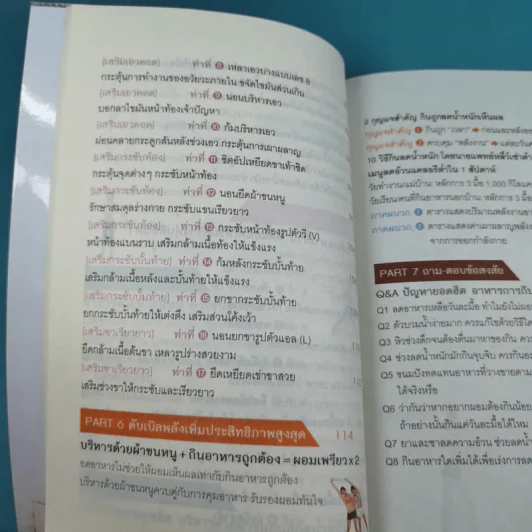 [เสริมเอวคอด] ท่าที่ 8 เหลาเอวบางแบบเดซ 8
กระตุ้นการทำงานของอวัยวะภายใน ขจัดไขมันส่วนเกิน
[เสริมเอวคอด] ท่าที่ 9 นอนบริหารเอว
บอกลาไขมันหน้าท้องเจ้าปัญหา
[เสริมเอวคอด] ท่าที่ 10 ก้มบริหารเอว
ผ่อนคลายกระดูกสันหลังช่วงเอว กระตุ้นการเผาผลาญ
[เสริมกระชับท้อง] ท่าที่ 11 ชิดอัปเหยียดขาเท้าชิด
กระตุ้นจุดต่างๆ กระชับหน้าท้อง
[เสริมกระชับท้อง] ท่าที่ 12 นอนยืดผ้าขนหนู
รักษาสมดุลร่างกาย กระชับแขนเรียวยาว
[เสริมกระชับท้อง] ท่าที่ 13 กระชับหน้าท้องรูปตัววี (V)
หน้าท้องแบนราบ เสริมกล้ามเนื้อท้องให้แข็งแรง
[เสริมกระชับบั้นท้าย] ท่าที่ 14 ก้มหลังกระชับบั้นท้าย
เสริมกล้ามเนื้อหลังและบั้นท้ายให้แข็งแรง
[เสริมกระชับบั้นท้าย] ท่าที่ 15 ยกขากระชับบั้นท้าย
ยกกระชับบั้นท้ายให้เต่งตึง เสริมส่วนโค้งเว้า
[เสริมขาเรียวยาว] ท่าที่ 16 นอนยกขารูปตัวแอล (L)
ยืดกล้ามเนื้อต้นขา เหลารูปร่างสวยงาม
[เสริมขาเรียวยาว] ท่าที่ 17 ยืดเหยียดเข่าขาสวย
เสริมช่วงขาให้กระชับและเรียวยาว
PART 6 ดับเบิลพลังเพิ่มประสิทธิภาพสูงสุด 114
บริหารด้วยผ้าขนหนู + กินอาหารถูกต้อง = ผอมเพรียว x 2
อดอาหารไม่ช่วยให้ผอมเห็นผลเท่ากับกินอาหารถูกต้อง
บริหารด้วยผ้าขนหนูควบคู่กับการคุมอาหาร รับรองผอมทันใจ
2 กุญแจสำคัญ กินถูกลดน้ำหนักเห็นผล
กุญแจสำคัญ 1 กินถูก "เวลา" ก่อนและหลังออก
กุญแจสำคัญ 2 ควบคุม "พลังงาน" แต่ละวัน
10 วิธีกินลดน้ำหนัก โดยนายแพทย์
เมนูลดอ้วนแคลอรีต่ำใน 1 สัปดาห์
วัยทำงาน/แม่บ้าน: หลักการ 3 มื้อ 1,000 กิโลแค
วัยเรียน/คนที่กินอาหารนอกบ้าน: หลักการ 3 มื้อ
ภาคผนวก 1 ตารางแสดงปริมาณพลังงาน
ภาคผนวก 2 ตารางแสดงค่าเผาผลาญพลัง
จากการออกกำลังกาย
PART 7 ถาม-ตอบข้อสงสัย
Q&A ปัญหายอดฮิต อาหารการกิน
Q1 ลดอาหารเหลือวันละมื้อ ทำไมยังไม่ผอม
Q2 ตัวบวมน้ำง่ายมาก ควรแก้ด้วยวิธีใด
Q3 หิวช่วงดึกจนต้องตื่นมาหาของกิน ควร
Q4 ช่วงลดน้ำหนักมักกินจุบจิบ ควรกิน
Q5 ขนมปังทดแทนอาหารที่วางขายตาม
ได้จริงหรือ
Q6 ว่ากันว่าหากอยากผอมต้องกินน้อย
ถ้าอย่างนั้นกินแค่วันละมื้อได้ไหม
Q7 ยาและชาลดความอ้วน ช่วยลดน้ำ
Q8 กินอาหารใดเพิ่มได้เพื่อเร่งการลด